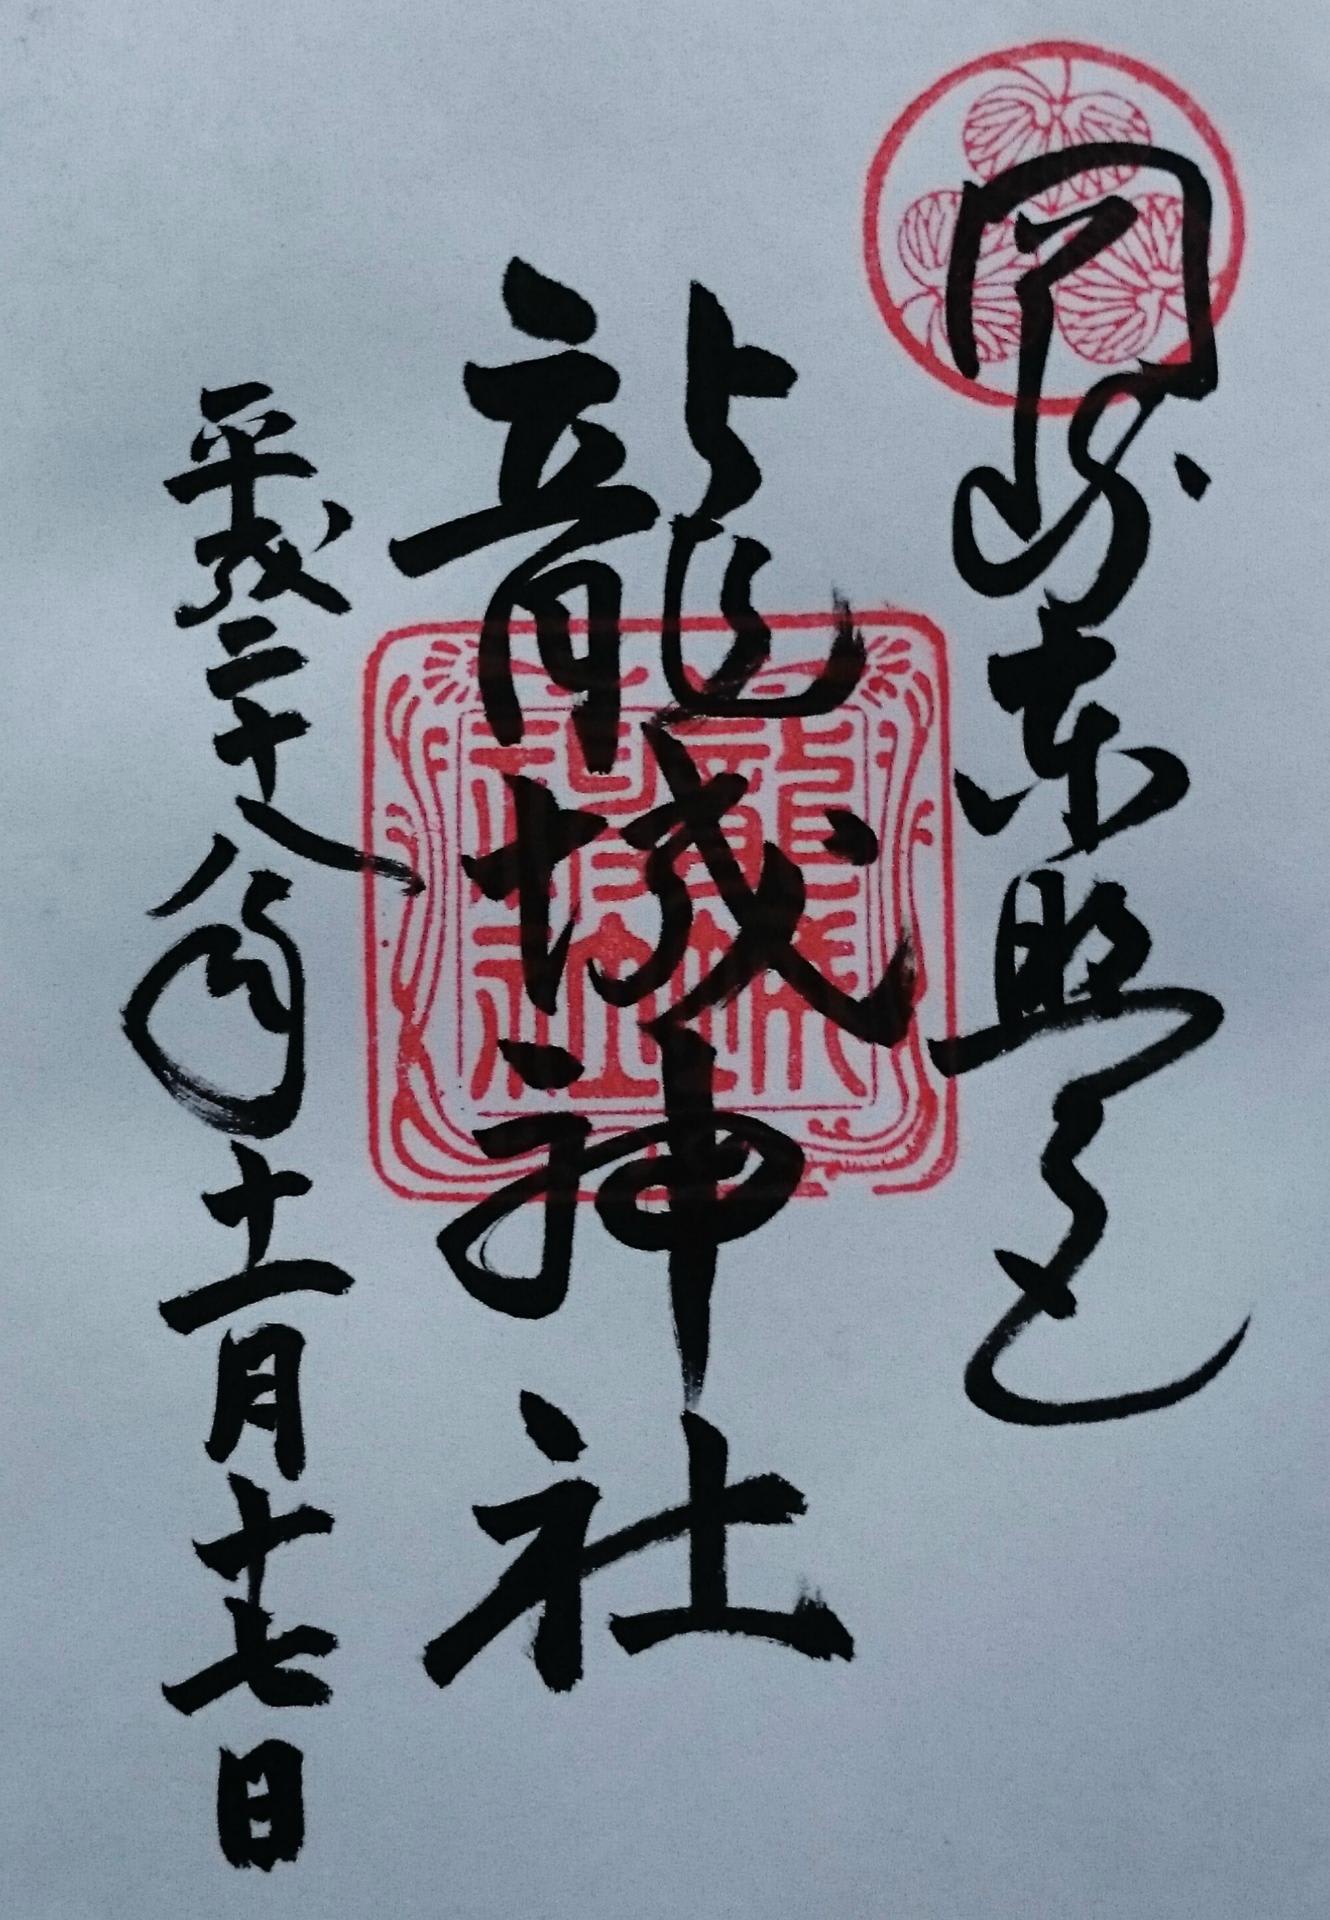 岡崎東照宮
龍城神社
平成二十八年十一月十七日
龍城神社